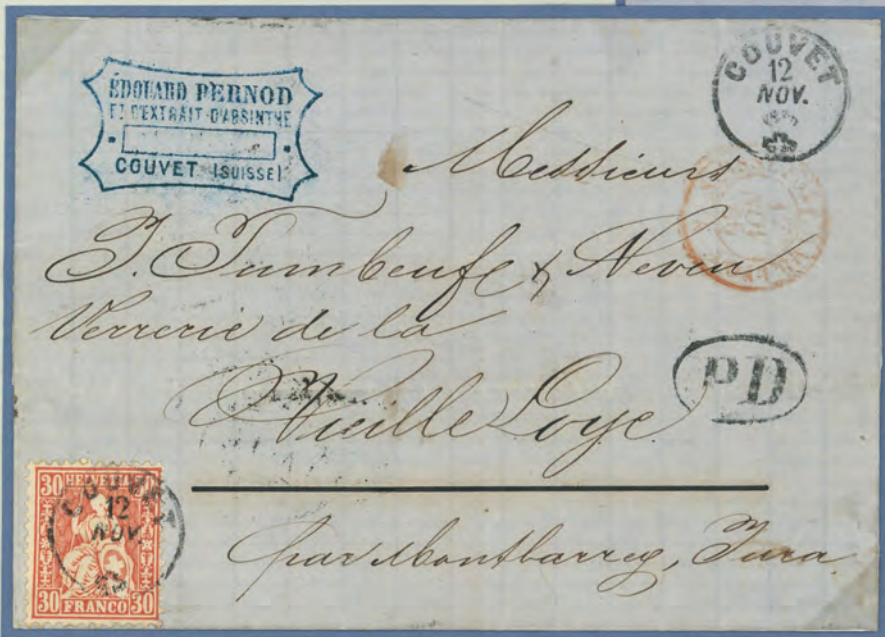 ÉDOUARD PERNOD
Ft D'EXTRAIT D'ABSINTHE
COUVET (SUISSE)
COUVET
12
NOV.
Messieurs
J. Tumbeuf & Neveu
Verrerie de la
Vieille Loye
PD
par Montbarrey, Jura
30 HELVETIA 30
COUVET
12
NOV
30 FRANCO 30